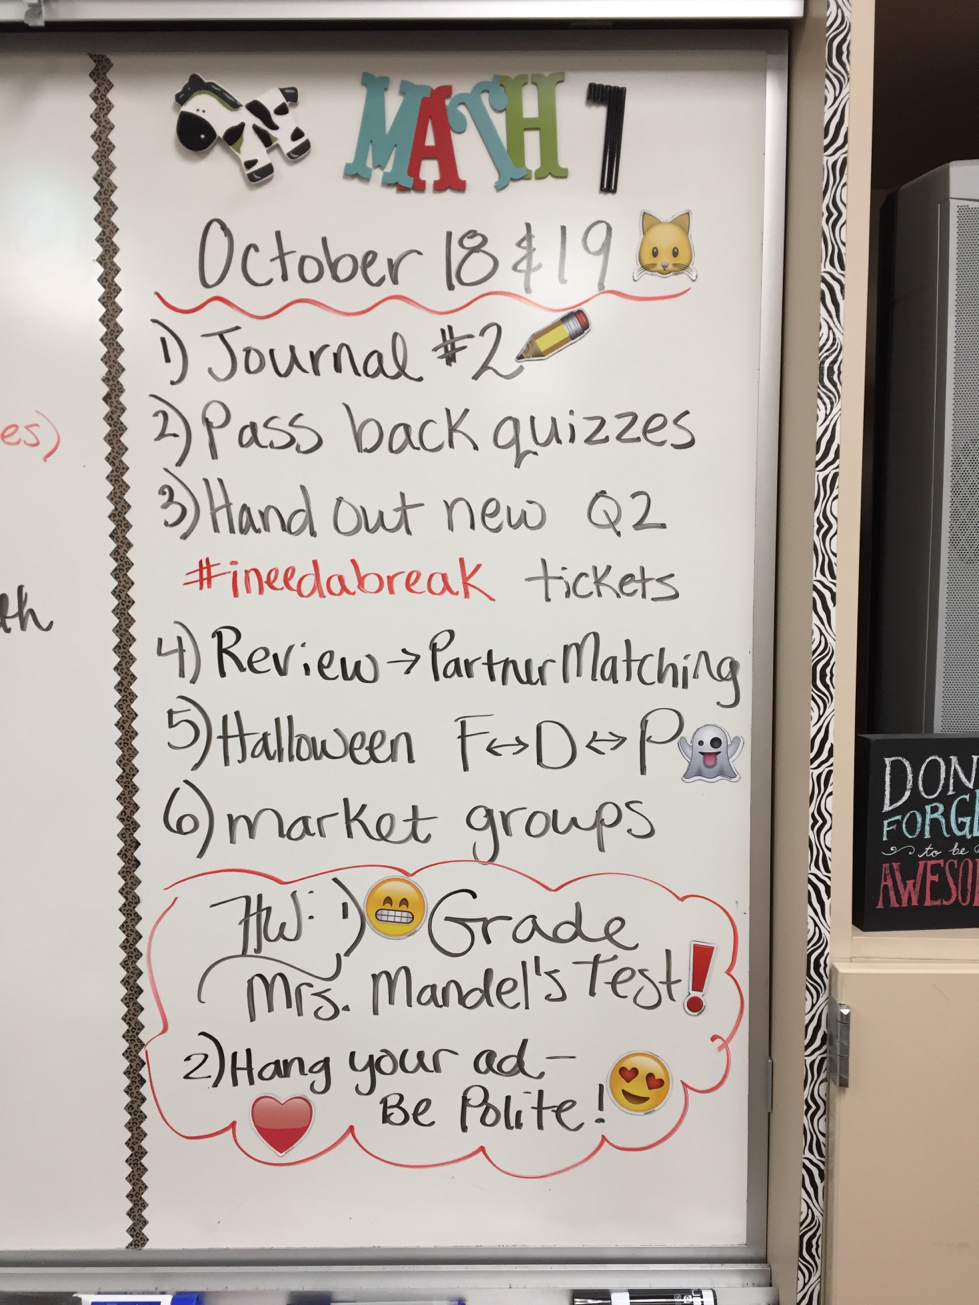 MATH 7
October 18 & 19
1) Journal #2
2) Pass back quizzes
3) Hand out new Q2
#ineedabreak tickets
4) Review → Partner Matching
5) Halloween F ↔ D ↔ P
6) market groups
HW: 1) Grade
Mrs. Mandel's Test!
2) Hang your ad –
Be Polite!
es)
th
DON
FORG
to be
AWESO